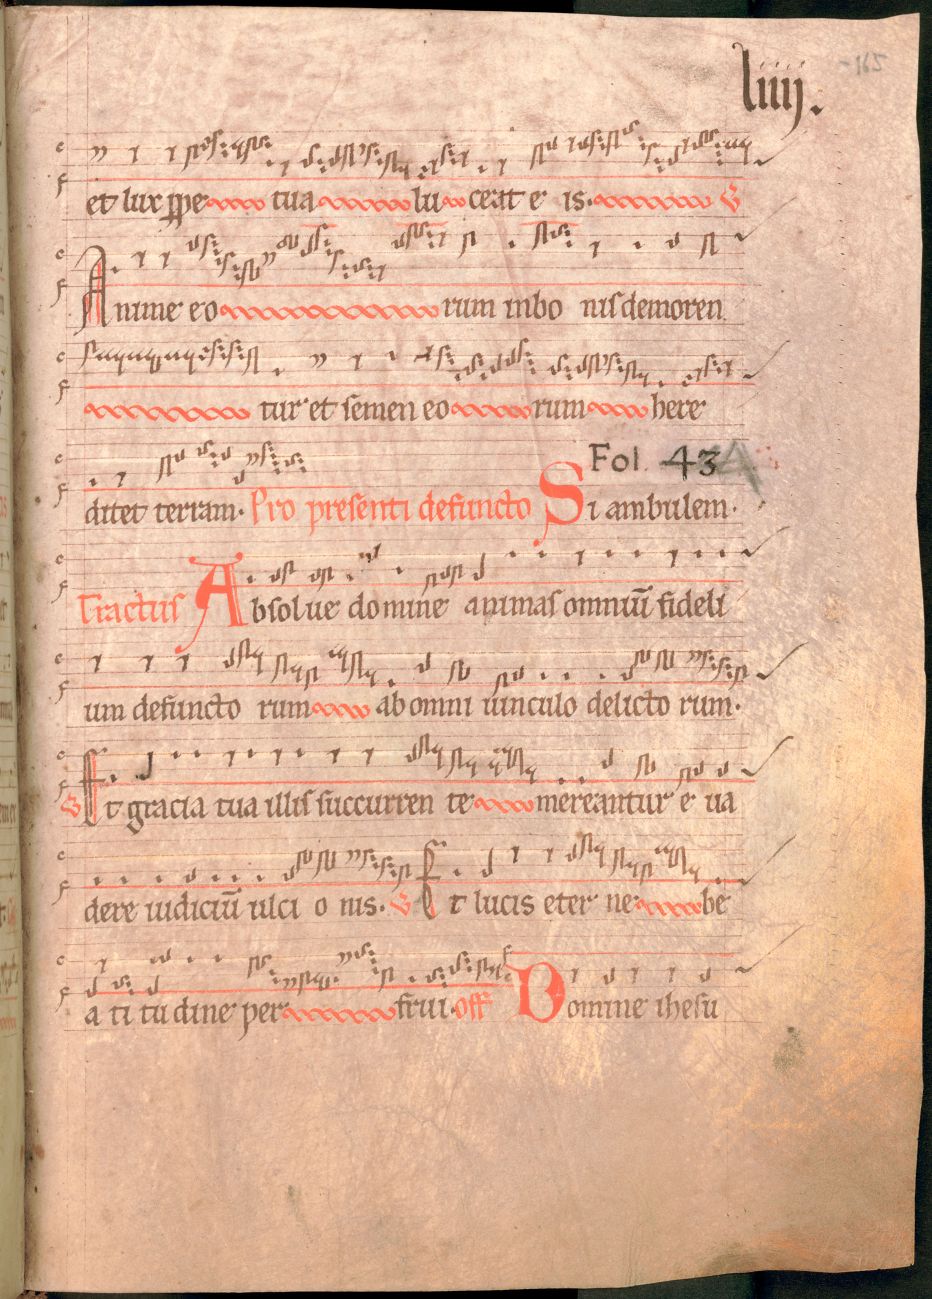 liiij.
et lux ppe tua lu ceat e is. V
Anime eo rum inbo nis demoren
tur et semen eo rum here
Fol. 43
ditet terram. Pro presenti defuncto Si ambulem.
Tractus Absolue domine animas omniū fideli
um defuncto rum ab omni uinculo delicto rum.
V Et gracia tua illis succurren te mereantur e ua
dere iudiciū ulci o nis. V Et lucis eter ne be
a ti tu dine per frui. off Domine ihesu